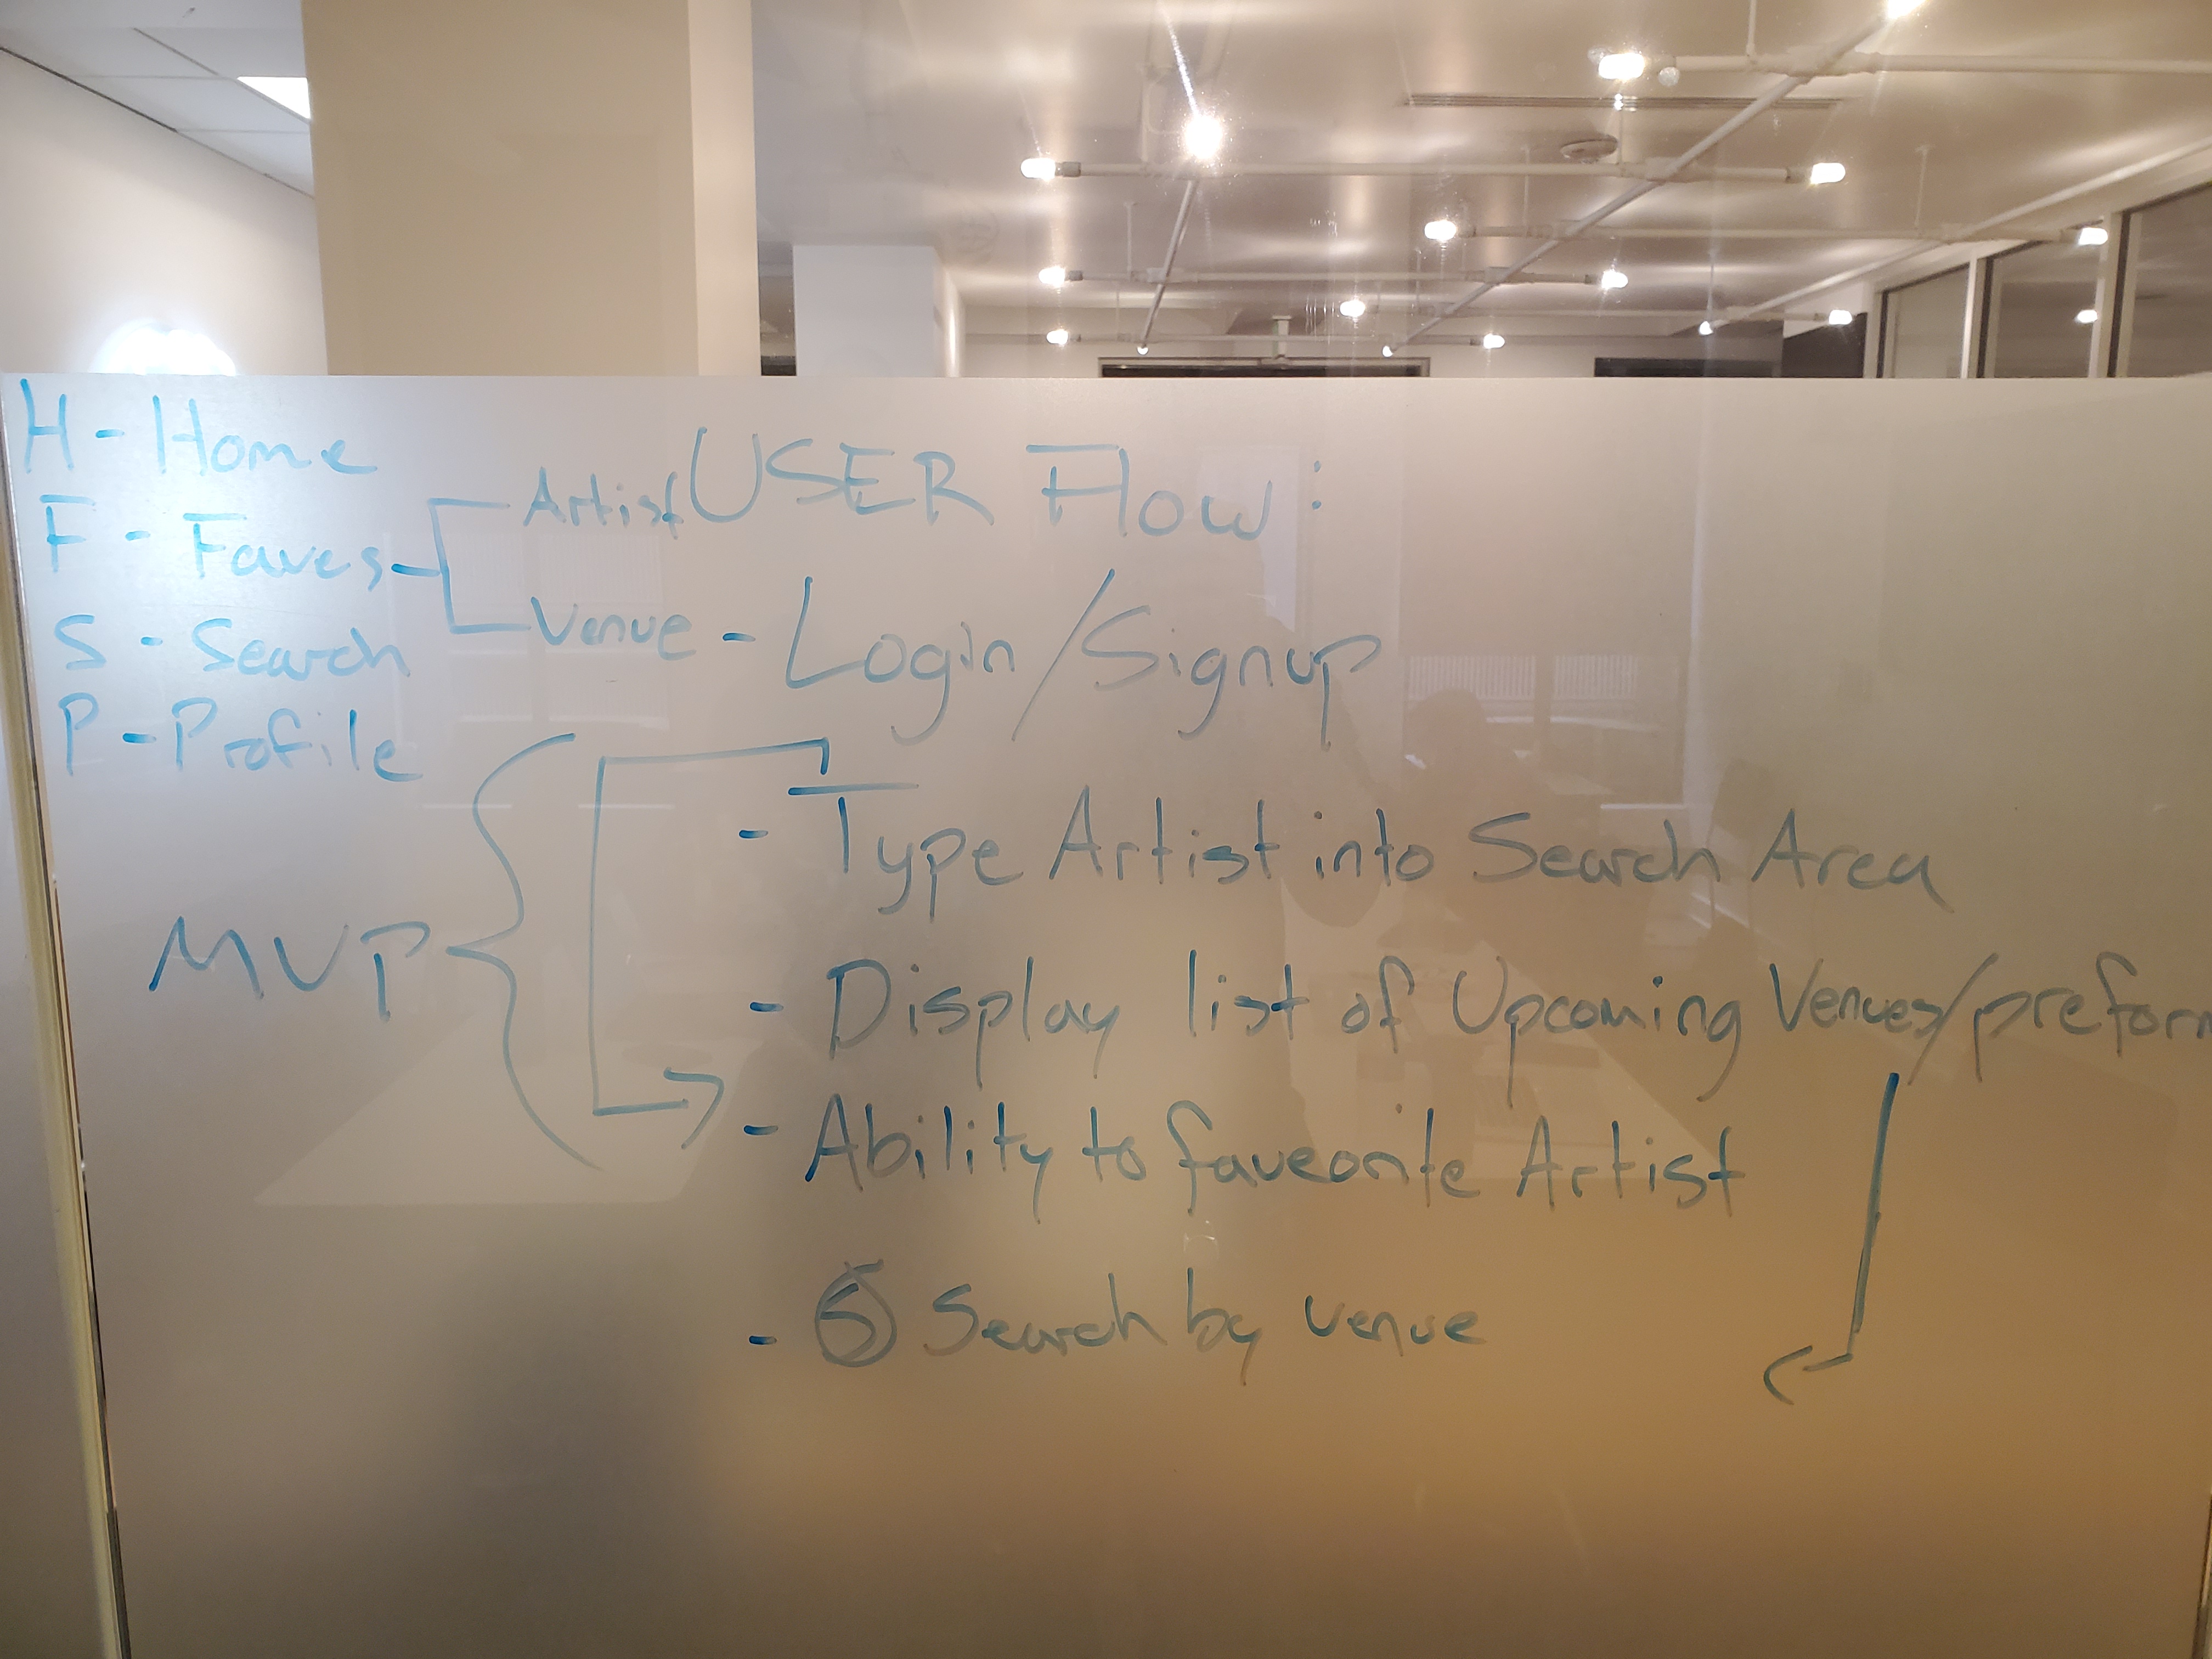 H - Home
F - Faves
Artist
Venue
S - Search
P - Profile
USER Flow:
- Login/Signup
MVP
- Type Artist into Search Area
- Display list of Upcoming Venues/preform
- Ability to faveorite Artist
- S Search by venue